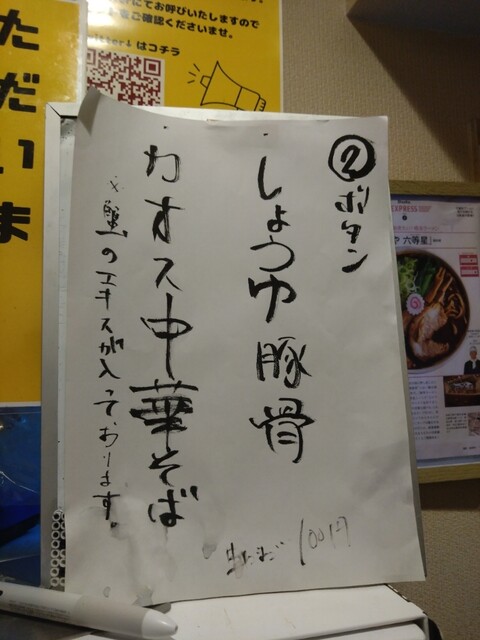 ②ボタン
・しょうゆ豚骨
・カオス中華そば
※蟹のエキスが入っております。
100円
にてお呼びいたしますので
ご確認くださいませ。
はコチラ
ただいま
EXPRESS
六等星